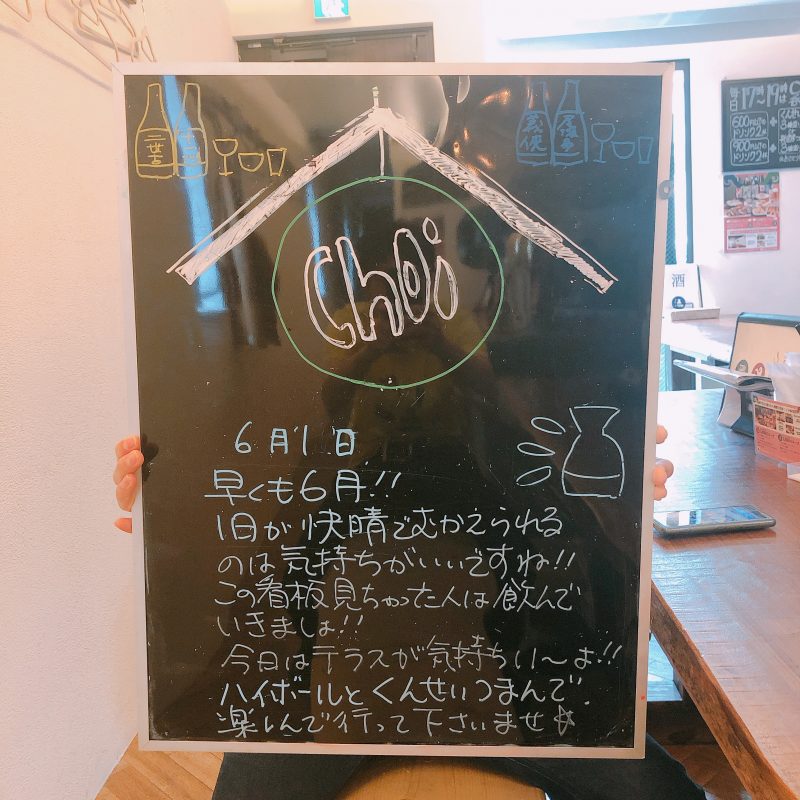 Choi
6月1日
早くも6月!!
1日が快晴でむかえられる
のは気持ちがいいですね!!
この看板見ちゃった人は飲んで
いきましょ!!
今日はテラスが気持ちい〜よ!!
ハイボールとくんせいつまんで.
楽しんで行って下さいませ☆
毎日17時〜19時は
600
ドリンク2
900
ドリンク2
酒